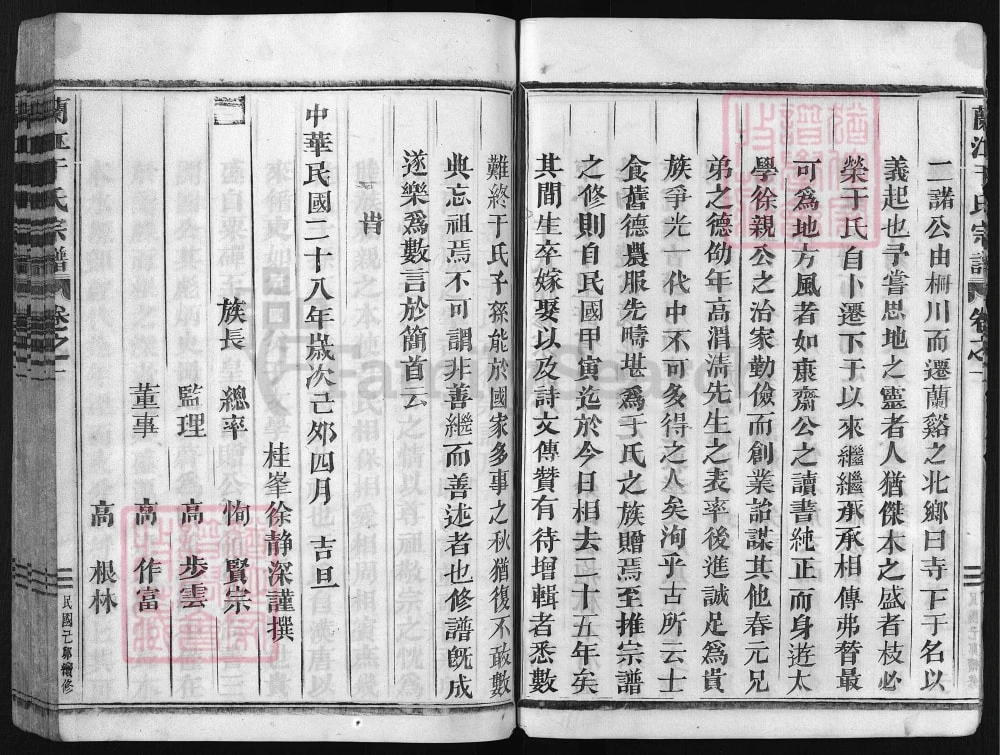 二諾公由桐川而遷蘭谿之北鄉曰寺下于名以
義起也予嘗思地之靈者人猶傑木之盛者枝必
榮于氏自卜遷下于以來繼繼承承相傳弗替最
可爲地方風者如康齋公之讀書純正而身遊太
學徐親公之治家勤儉而創業詒謀其他春元兄
弟之德劭年高渭清先生之表率後進誠足爲貴
族爭光一代中不可多得之人矣洵乎古所云士
食舊德農服先疇堪爲于氏之族贈焉至推宗譜
之修則自民國甲寅迄於今日相去二十五年矣
其間生卒嫁娶以及詩文傳贊有待增輯者悉數
難終于氏子孫能於國家多事之秋猶復不敢數
典忘祖焉不可謂非善繼而善述者也修譜旣成
遂樂爲數言於簡首云
旹
中華民國二十八年歲次己夘四月 吉旦
桂峯徐静深謹撰
族長 總率 恂 賢宗
監理 高 步雲
董事 高 作富
高 根林
蘭江于氏宗譜 卷之一
民國己夘續修